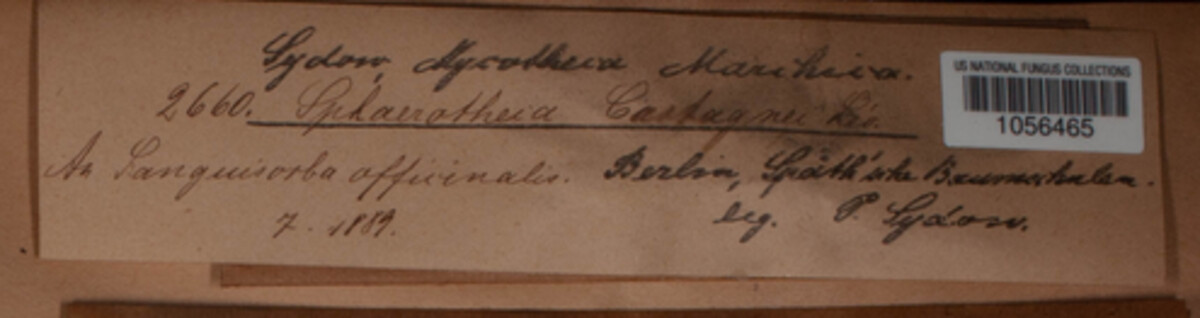 Sydow, Mycotheca Marchica.
2660. Sphaerotheca Castagnei Lév.
An Sanguisorba officinalis. Berlin, Späth'sche Baumschulen.
7. 1889. leg. P. Sydow.
US NATIONAL FUNGUS COLLECTIONS
1056465